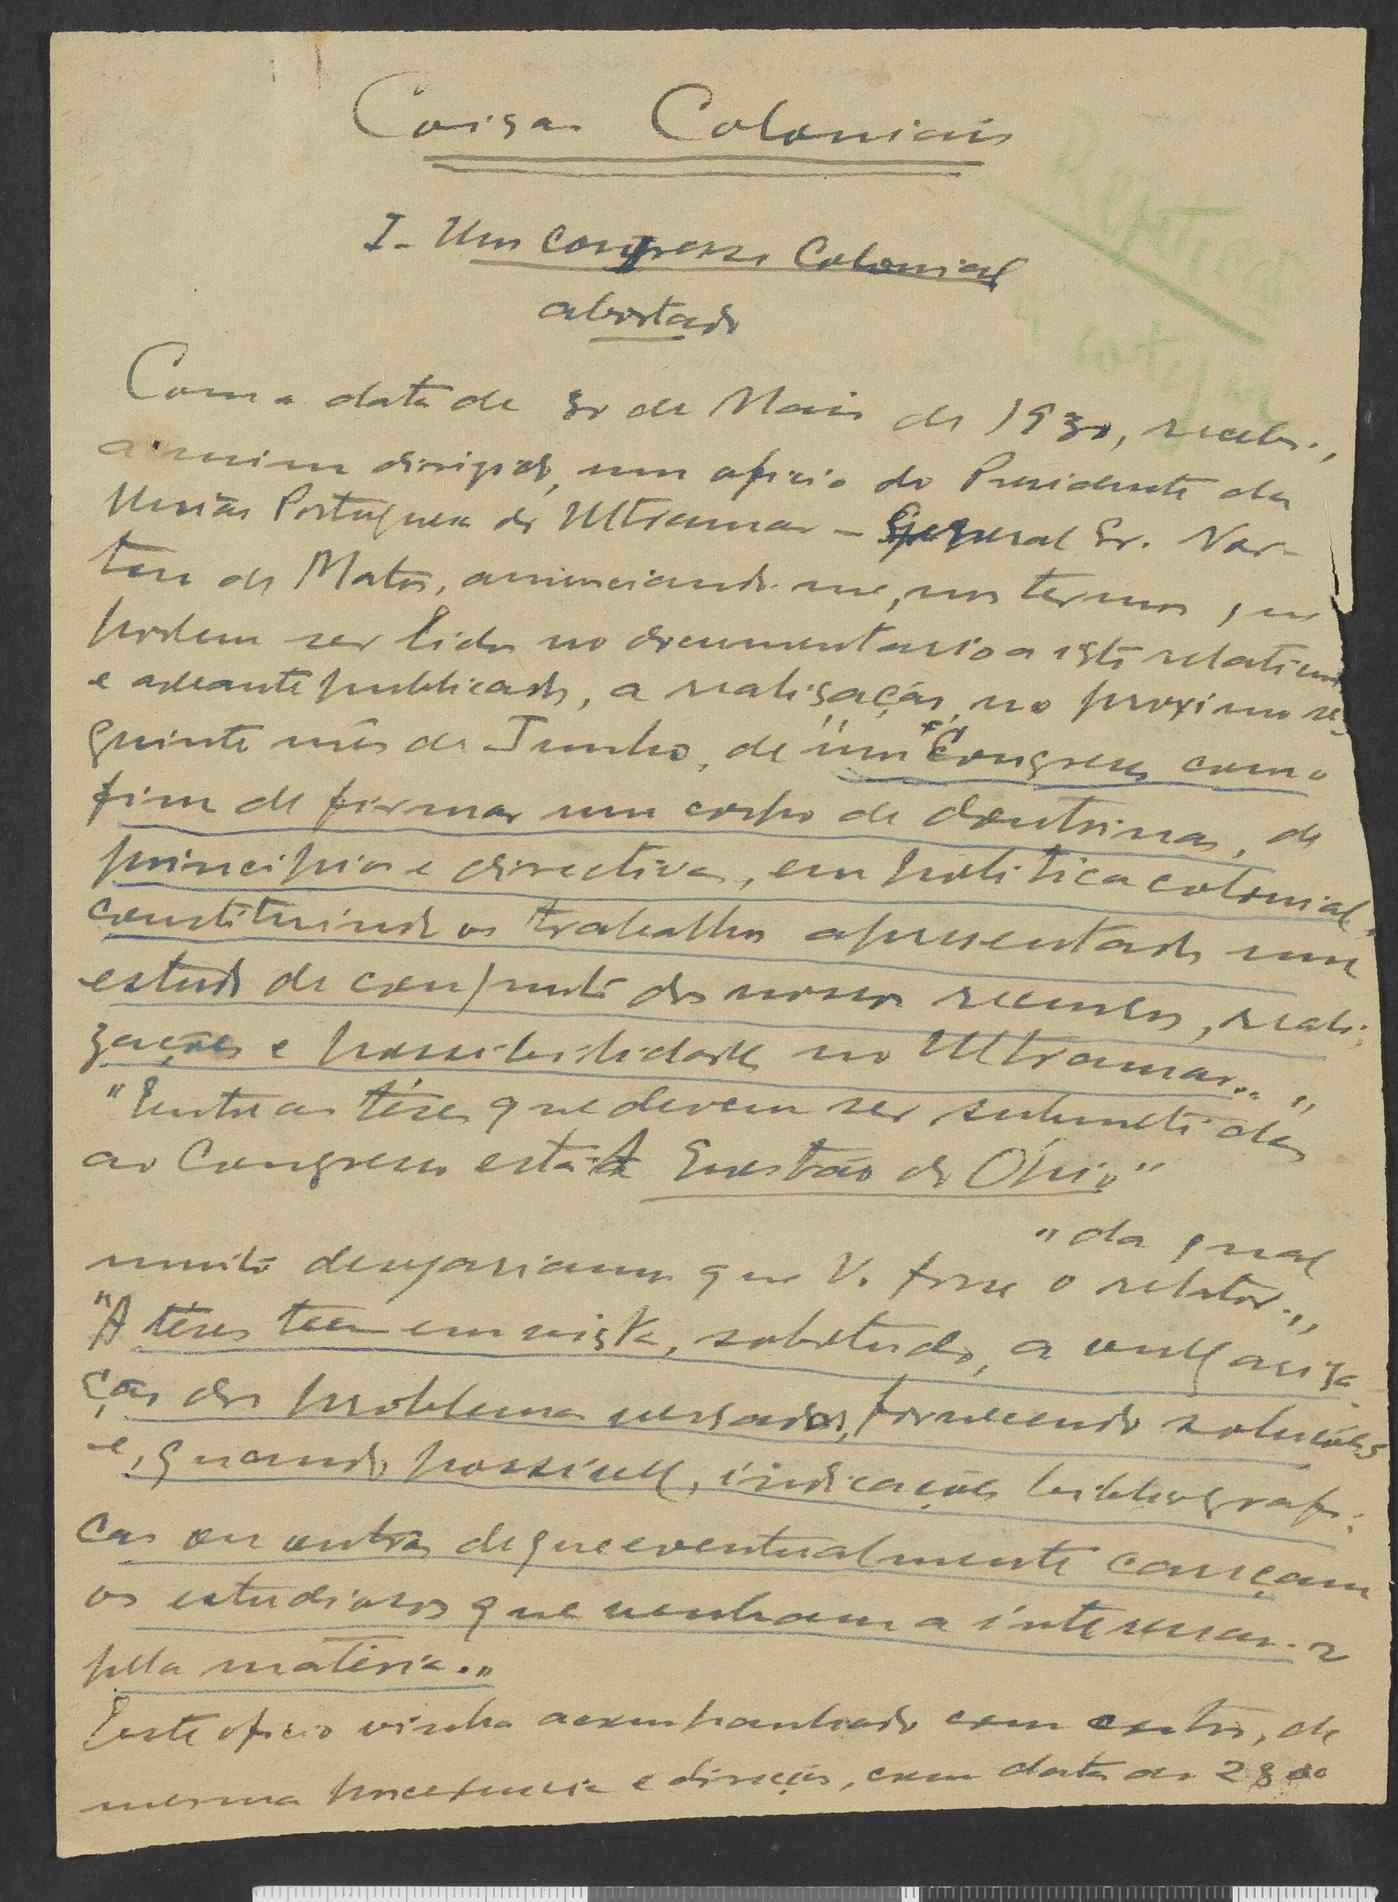 Coisas Coloniais
I - Um Congresso Colonial
abortado
Com a data de 30 de Maio de 1930, recebi,
a mim dirigido, um oficio do Presidente da
União Portuguesa do Ultramar - General Sr. Nor-
ton de Matos, anunciando-me, nos termos que
podem ser lidos no documentario a isto relativo
e adeante publicado, a realisação, no proximo se-
guinte mês de Junho, de "um Congresso com o
fim de firmar um corpo de doutrinas, de
principios e directivas, em politica colonial,
constituindo os trabalhos apresentados um
estudo de conjunto dos nossos recursos, reali-
zações e possibilidades no Ultramar..."
"Entre as téses que devem ser submetidas
ao Congresso está A Questão do Ópio"
"da qual
muito desejariamos que V. fosse o relator..."
"A téses teem em vista, sobretudo, a vulgarisa-
ção dos problemas versados, fornecendo soluções
e, quando possivel, indicações bibliografi-
cas ou outras de que eventualmente careçam
os estudiosos que venham a interessar-se
pela matéria."
Este oficio vinha acompanhado com outro, de
mesma procedencia e direcção, com data de 28 de